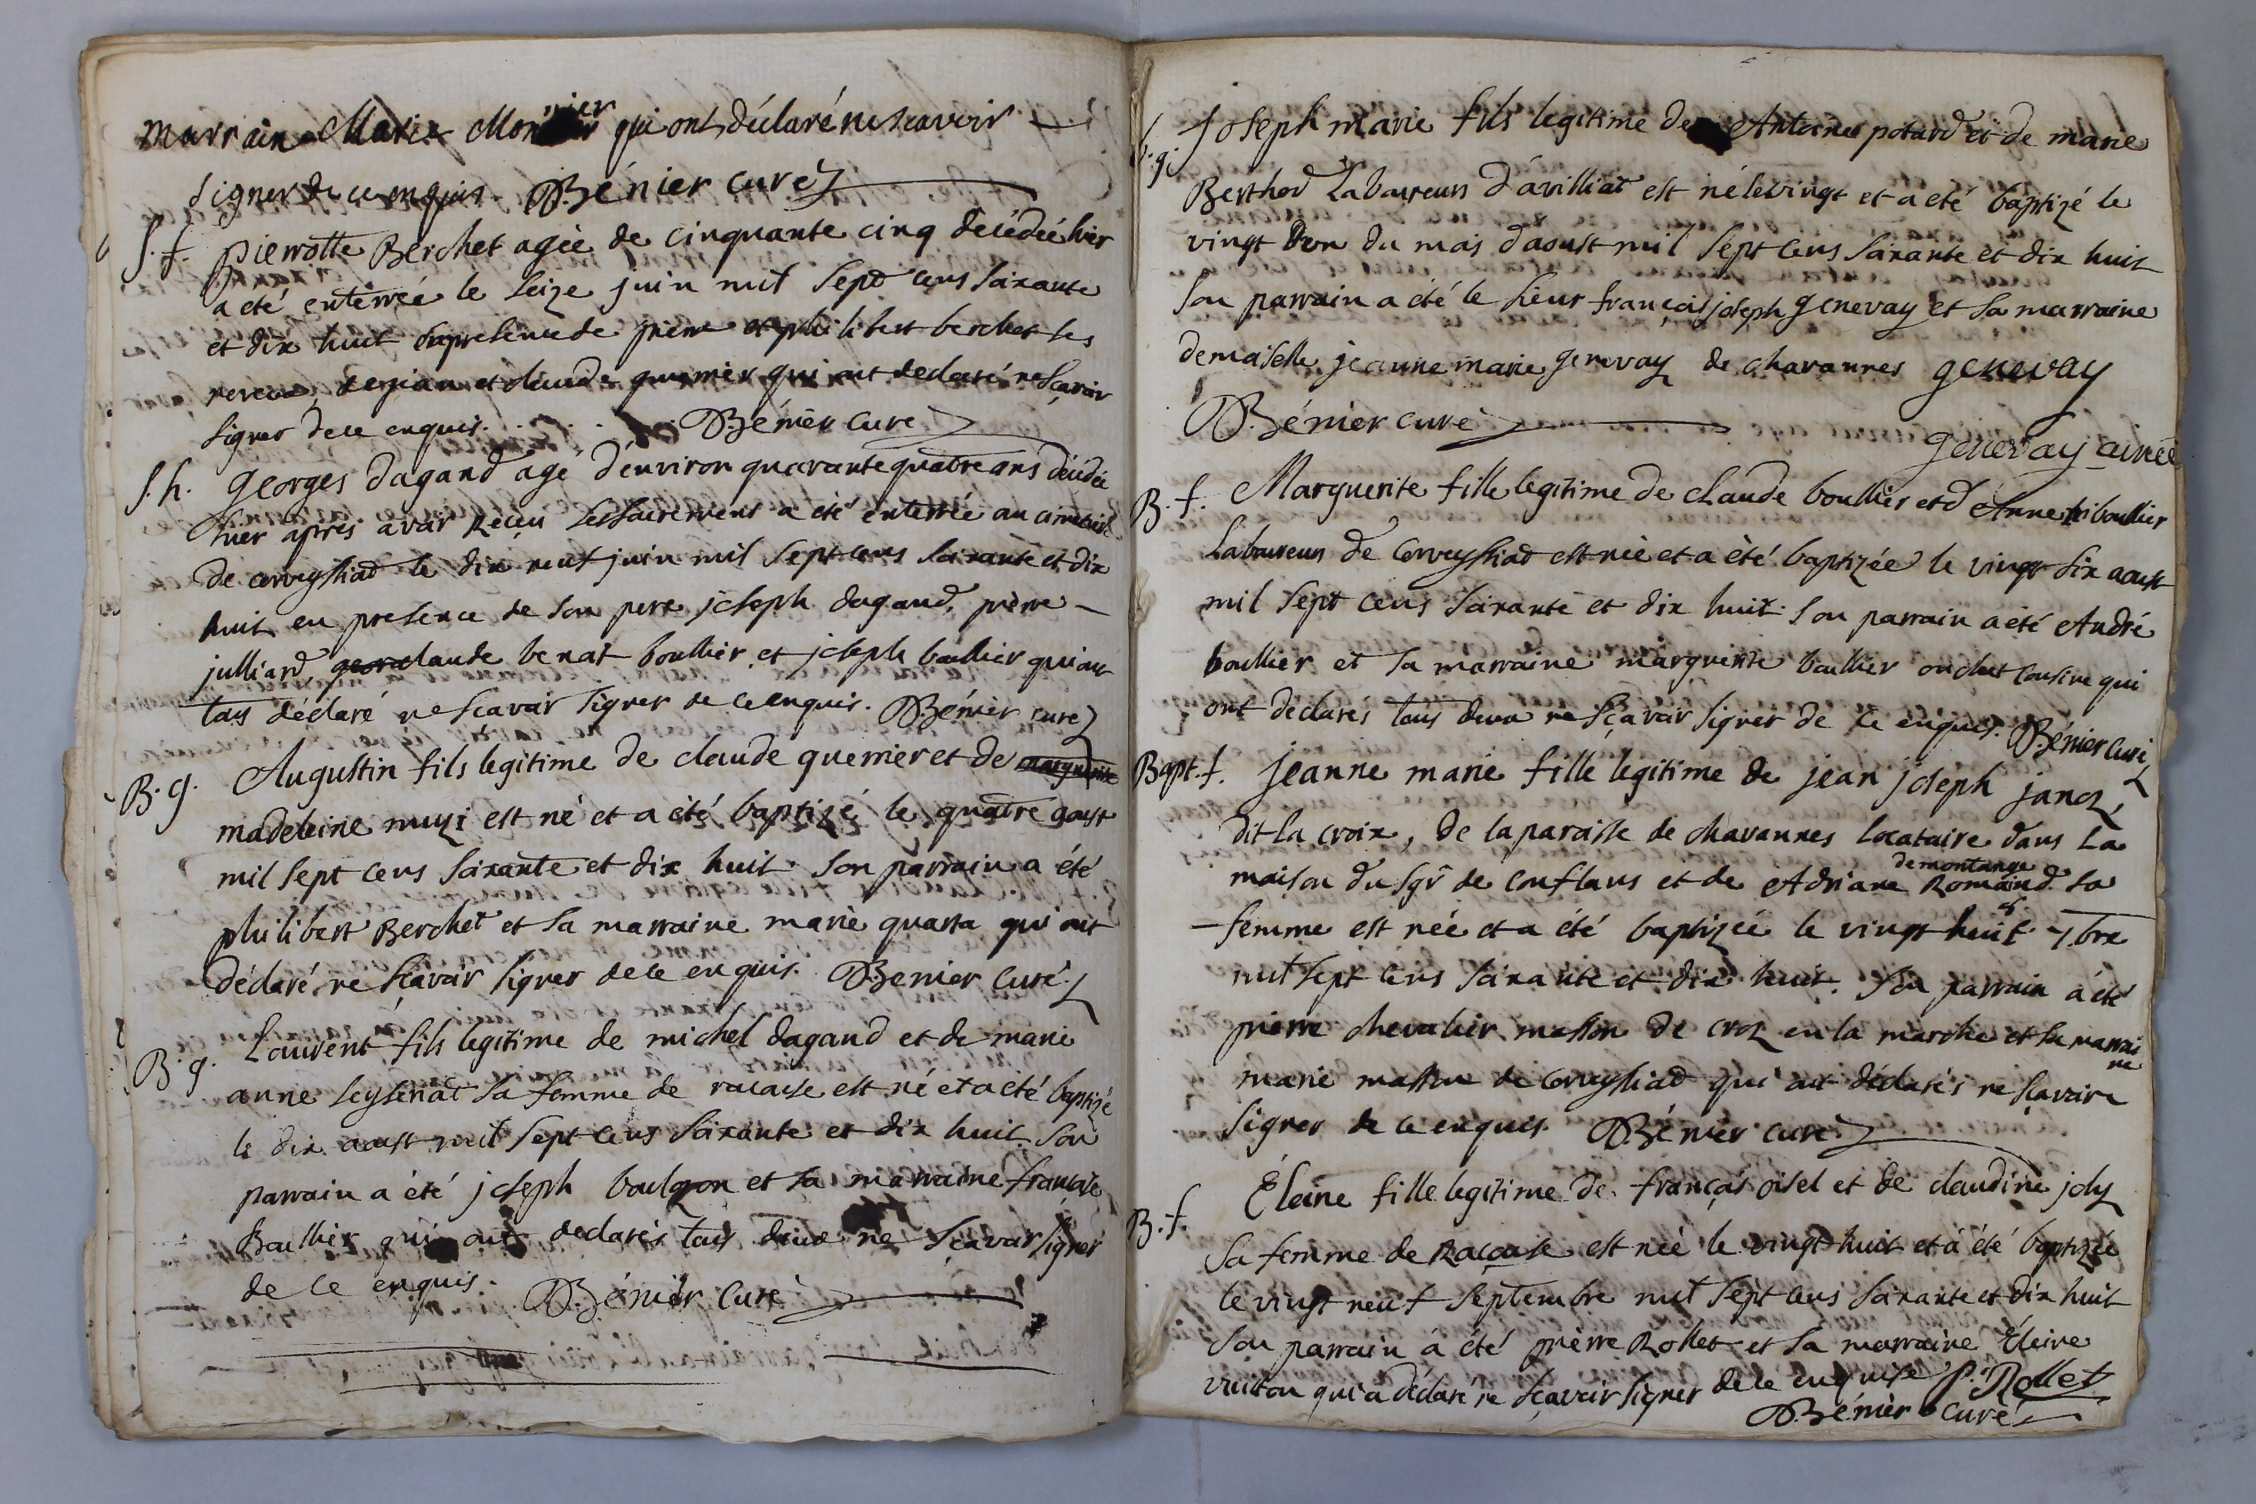 marrain Marie Monnier qui ont déclaré ne scavoir
signer de ce enquis. Bénier curé
S. f. pierrotte Berchet agée de cinquante cinq decédée hier
a eté enterrée le seize juin mil sept cens soixante
et dix huit en presence de pierre et philibert berchet ses
neveux, et claude guerrier qui ont declaré ne sçavoir
signer de ce enquis. Bénier curé
S. h. georges dagand agé d'environ quarante quatre ans décédé
hier après avoir reçeu les sacremens a été enterrée au cimetiere
de corveyssiad le dix neuf juin mil sept cens soixante et dix
huit en presence de son pere joseph dagand, pierre
julliard, claude benat boullier et joseph boullier qui ont
tous déclaré ne sçavoir signer de ce enquis. Bénier curé
B. g. Augustin fils legitime de claude guerrier et de marguerite
madeleine muzi est né et a été baptizé le quatre aoust
mil sept cens soixante et dix huit son parrain a été
philibert Berchet et sa marraine marie quarta qui ont
déclaré ne sçavoir signer de ce enquis. Benier curé
B. g. Laurent fils legitime de michel dagand et de marie
anne seyssenat sa femme de racouse est né et a été baptizé
le dix aoust mil sept cens soixante et dix huit son
parrain a été joseph boulgon et sa marraine francoise
Boullier qui ont declarés tous deux ne sçavoir signer
de ce enquis. Bénier curé
g. Joseph marie fils legitime de Antoine potard et de marie
Berthod Laboureurs d'avilliat est né le vingt et a eté baptizé le
vingt d'un du mois d'aoust mil sept cens soixante et dix huit
son parrain a été le sieur françois joseph genevay et sa marraine
demoiselle jeanne marie genevay de chavannes genevay
Bénier curé
genevay ainée
B. f. Marguerite fille legitime de claude boullier et d'Anne boullier
Laboureurs de Corveyssiad est née et a été baptizée le vingt six aoust
mil sept cens soixante et dix huit son parrain a été André
boullier et sa marraine marguerite boullier cousine qui
ont declarés tous deux ne sçavoir signer de ce enquis. Bénier curé
Bapt. f. jeanne marie fille legitime de jean joseph janoz,
dit la croix, de la paroisse de chavannes locataire dans la
maison du sgr de conflans et de Adriane Romand demontange sa
femme est née et a été baptizée le vingt huit 7bre
mil sept cens soixante et dix huit. son parrain a été
pierre chevalier masson de croz en la marche et sa marraine
marie massone de corveyssiad qui ont déclarés ne sçavoire
signer de ce enquis. Bénier curé
B. f. Éleine fille legitime de françois oisel et de claudine joly
sa femme de Racouse est née le vingt huit et a été baptizée
le vingt neuf septembre mil sept cens soixante et dix huit
son parrain a été pierre Rollet et sa marraine Éleine
vuitton qui a déclaré ne sçavoir signer de ce enquise P. Rollet
Bénier curé